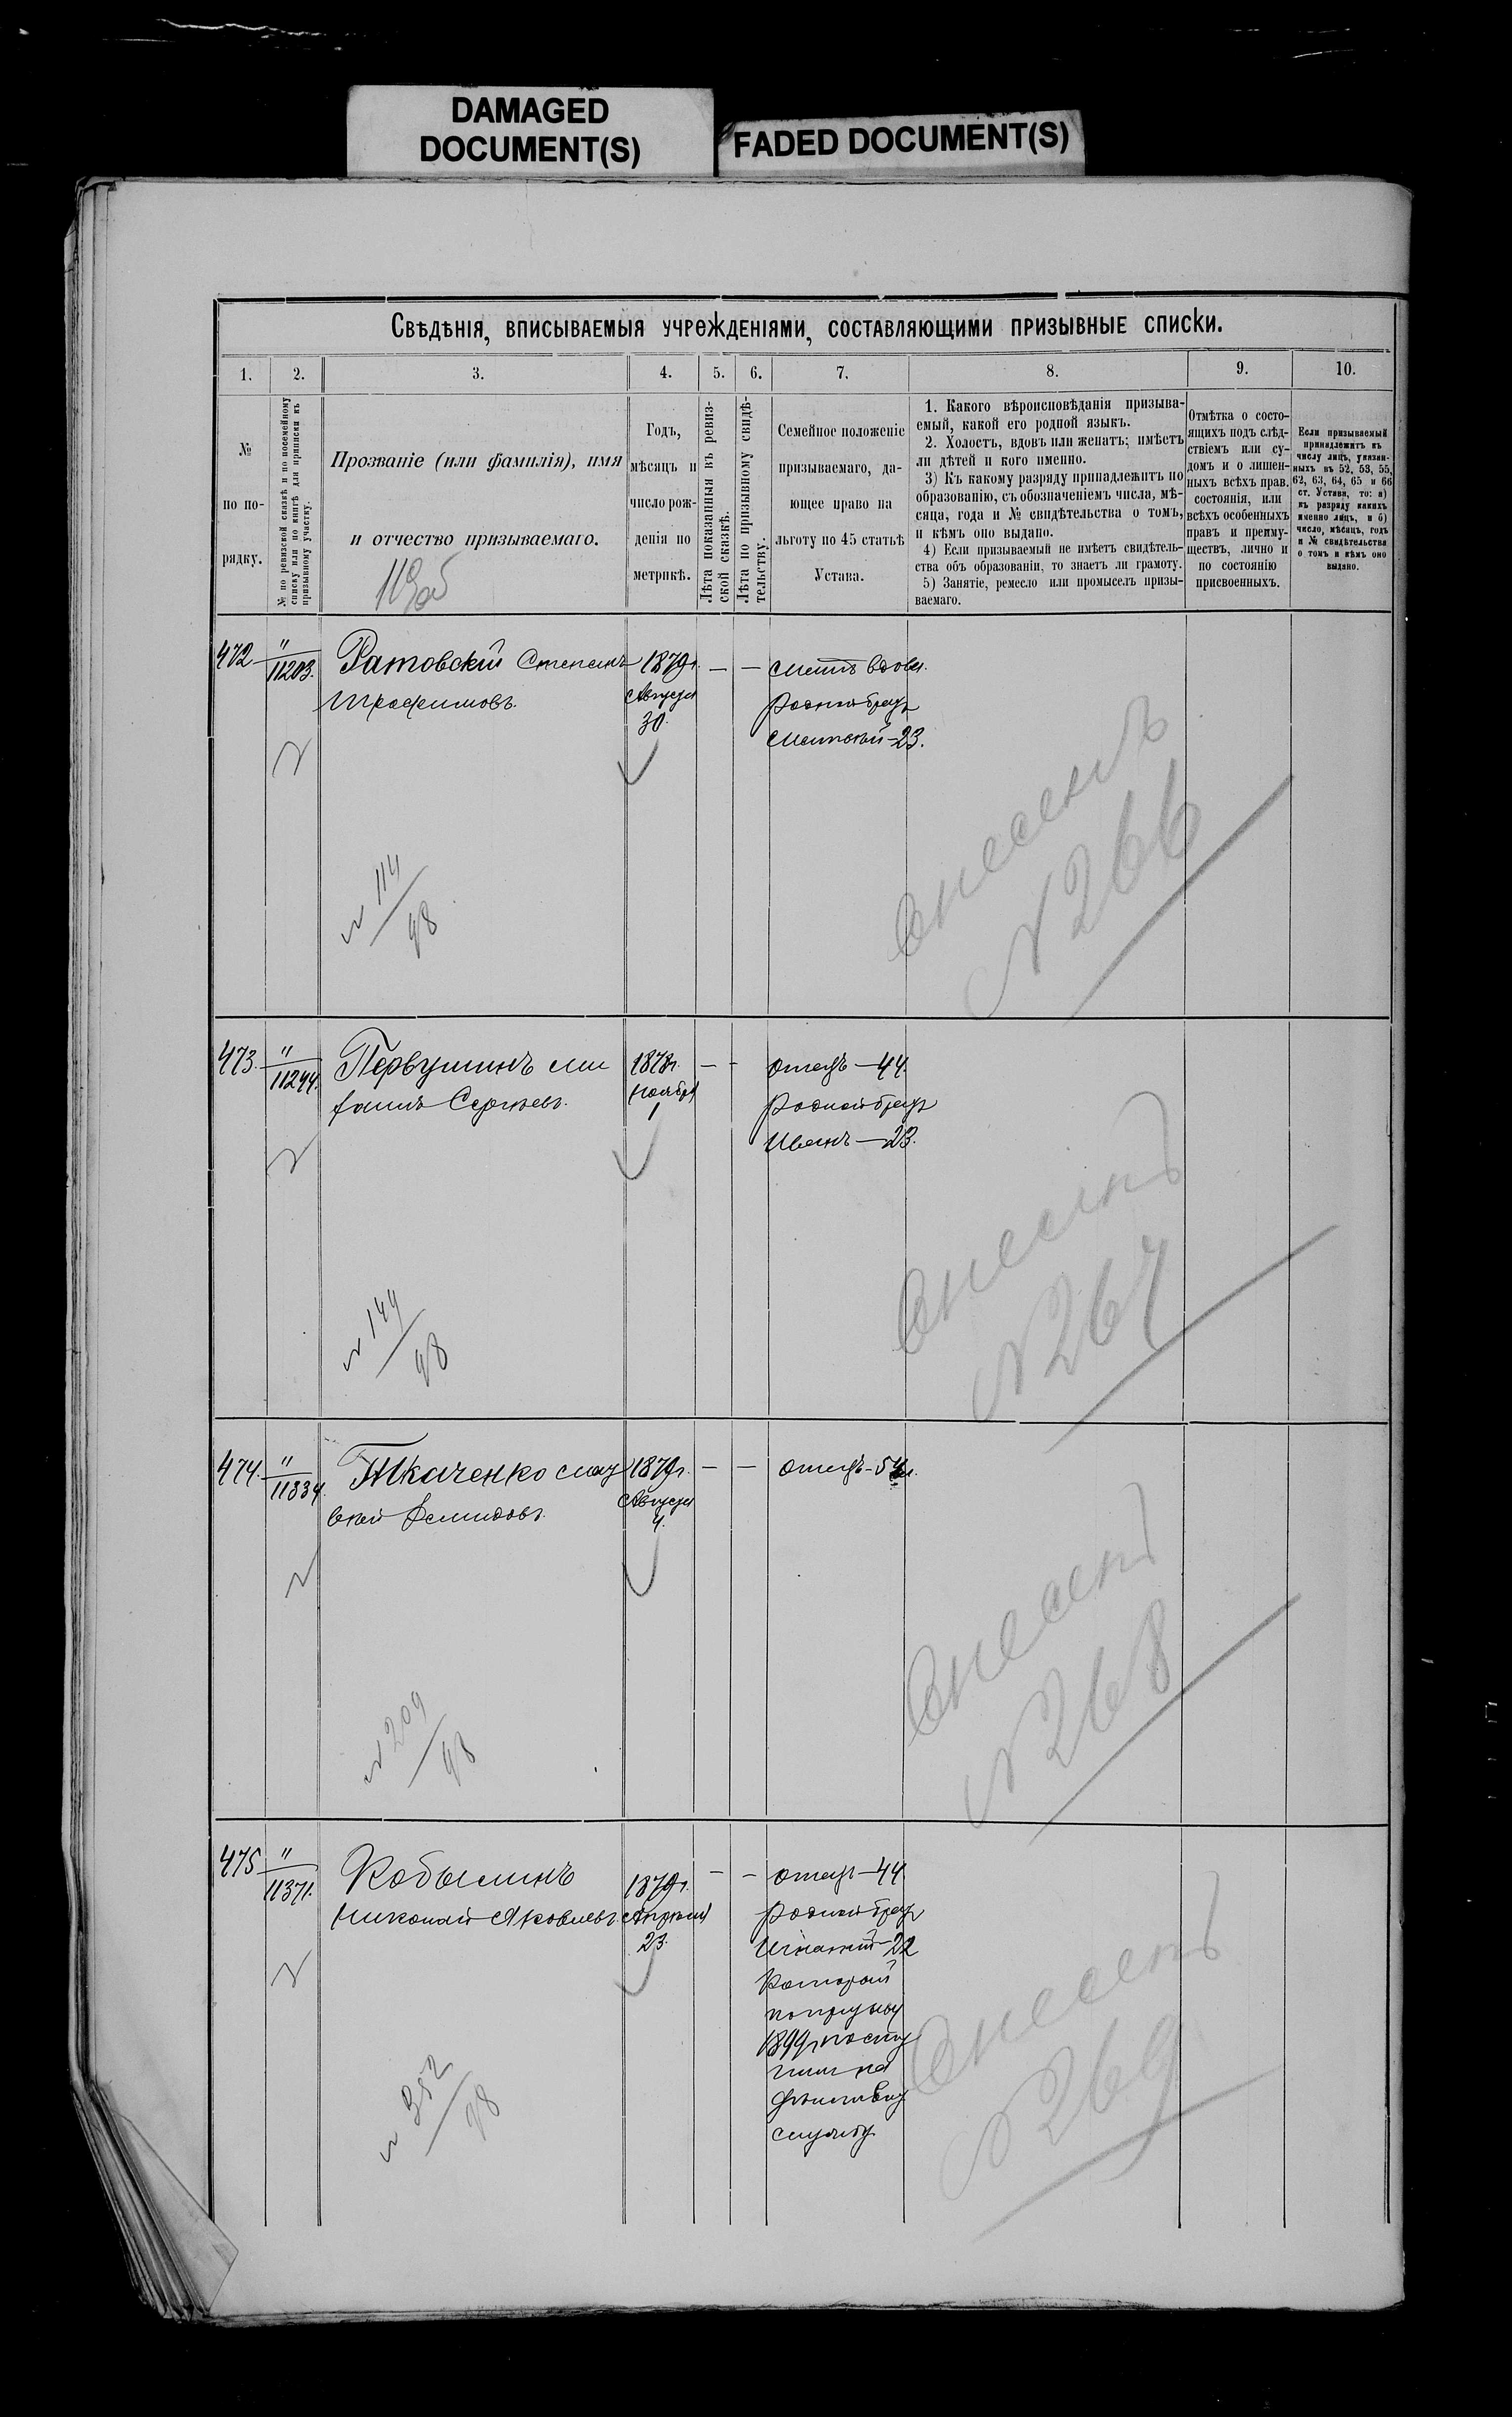 DAMAGED
DOCUMENT(S)
FADED DOCUMENT(S)
Свѣдѣнія, вписываемыя учрежденіями, составляющими призывные списки.
1. 2. 3. 4. 5. 6. 7. 8. 9. 10.
№
по по-
рядку.
№ по ревизской сказкѣ и по посемейному
списку или по книгѣ для приписки къ
призывному участку.
Прозваніе (или фамилія), имя
и отчество призываемаго.
Годъ,
мѣсяцъ и
число рож-
денія по
метрикѣ.
Лѣта показанныя въ ревиз-
ской сказкѣ.
Лѣта по призывному свидѣ-
тельству.
Семейное положеніе
призываемаго, да-
ющее право на
льготу по 45 статьѣ
Устава.
1. Какого вѣроисповѣданія призыва-
емый, какой его родной языкъ.
2. Холостъ, вдовъ или женатъ; имѣетъ
ли дѣтей и кого именно.
3) Къ какому разряду принадлежитъ по
образованію, съ обозначеніемъ числа, мѣ-
сяца, года и № свидѣтельства о томъ,
и кѣмъ оно выдано.
4) Если призываемый не имѣетъ свидѣтель-
ства объ образованіи, то знаетъ ли грамоту.
5) Занятіе, ремесло или промыселъ призы-
ваемаго.
Отмѣтка о состо-
ящихъ подъ слѣд-
ствіемъ или су-
домъ и о лишен-
ныхъ всѣхъ прав.
состоянія, или
всѣхъ особенныхъ
правъ и преиму-
ществъ, лично и
по состоянію
присвоенныхъ.
Если призываемый
принадлежитъ къ
числу лицъ, указан-
ныхъ въ 52, 53, 55,
62, 63, 64, 65 и 66
ст. Устава, то: а)
къ разряду какихъ
именно лицъ, и б)
число, мѣсяцъ, годъ
и № свидѣтельства
о томъ и кѣмъ оно
выдано.
472 " 11203. Ратовскій Степанъ 1879г. — — Мать вдова.
Трофимовъ. Августа Родной братъ
30. 23.
Внесенъ
№ 266
№ 114/98
473. " 11244. Первушинъ Ми 1878г. — — Отецъ — 44.
хаилъ Сергѣевъ. Ноября Родной братъ
1 Иванъ — 23.
Внесенъ
№ 267
№ 149/98
474. " 11334. Ткаченко 1879г. — — Отецъ - 54л.
Демидовъ. Августа
4.
Внесенъ
№ 268
№ 209/98
475 " 11371. Кобылинъ 1879г. — — Отецъ — 44.
Николай Яковлевъ. Апрѣля Родной братъ
23. Игнатій — 22
Который
по призыву
1899г посту
пилъ на
дѣйствит
службу
Внесенъ
№ 269
№ 352/98